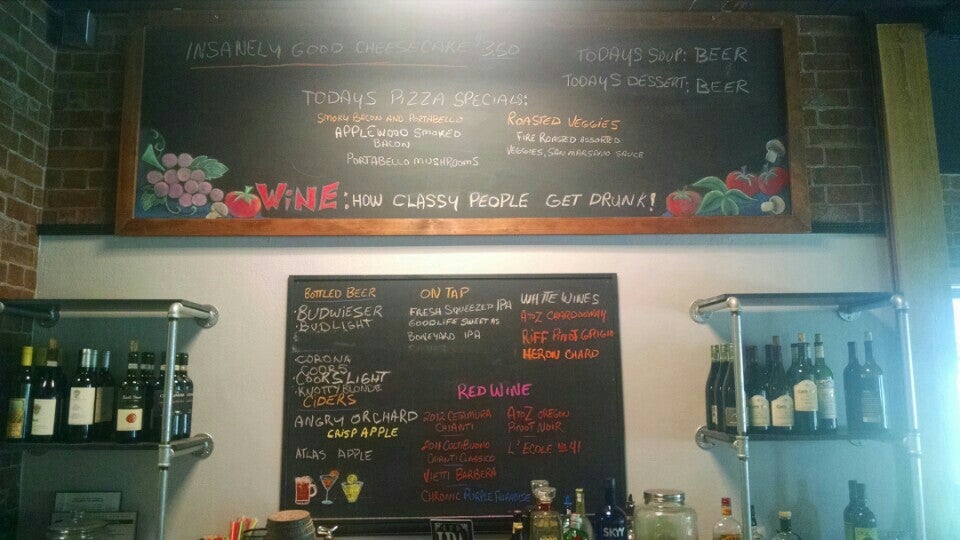 INSANELY GOOD CHEESECAKE $3.50
TODAYS SOUP: BEER
TODAYS DESSERT: BEER
TODAYS PIZZA SPECIALS:
SMOKY BACON AND PORTABELLO
APPLEWOOD SMOKED
BACON
PORTABELLO MUSHROOMS
ROASTED VEGGIES
FIRE ROASTED ASSORTED
VEGGIES, SAN MARSANO SAUCE
WINE: HOW CLASSY PEOPLE GET DRUNK!
BOTTLED BEER
BUDWIESER
BUDLIGHT
CORONA
COORS
COORS LIGHT
KNOTTY BLONDE
CIDERS
ANGRY ORCHARD
CRISP APPLE
ATLAS APPLE
ON TAP
FRESH SQUEEZED IPA
GOODLIFE SWEET AS
BONEYARD IPA
WHITE WINES
A TO Z CHARDONNAY
RIFF PINOT GRIGIO
HERON CHARD
RED WINE
2012 CETAMURA
CHIANTI
COLTIBUONO
CHIANTI CLASSICO
VIETTI BARBERA
CHRONIC PURPLE PARADISE
A TO Z OREGON
PINOT NOIR
L'ECOLE NO. 41
SKYY